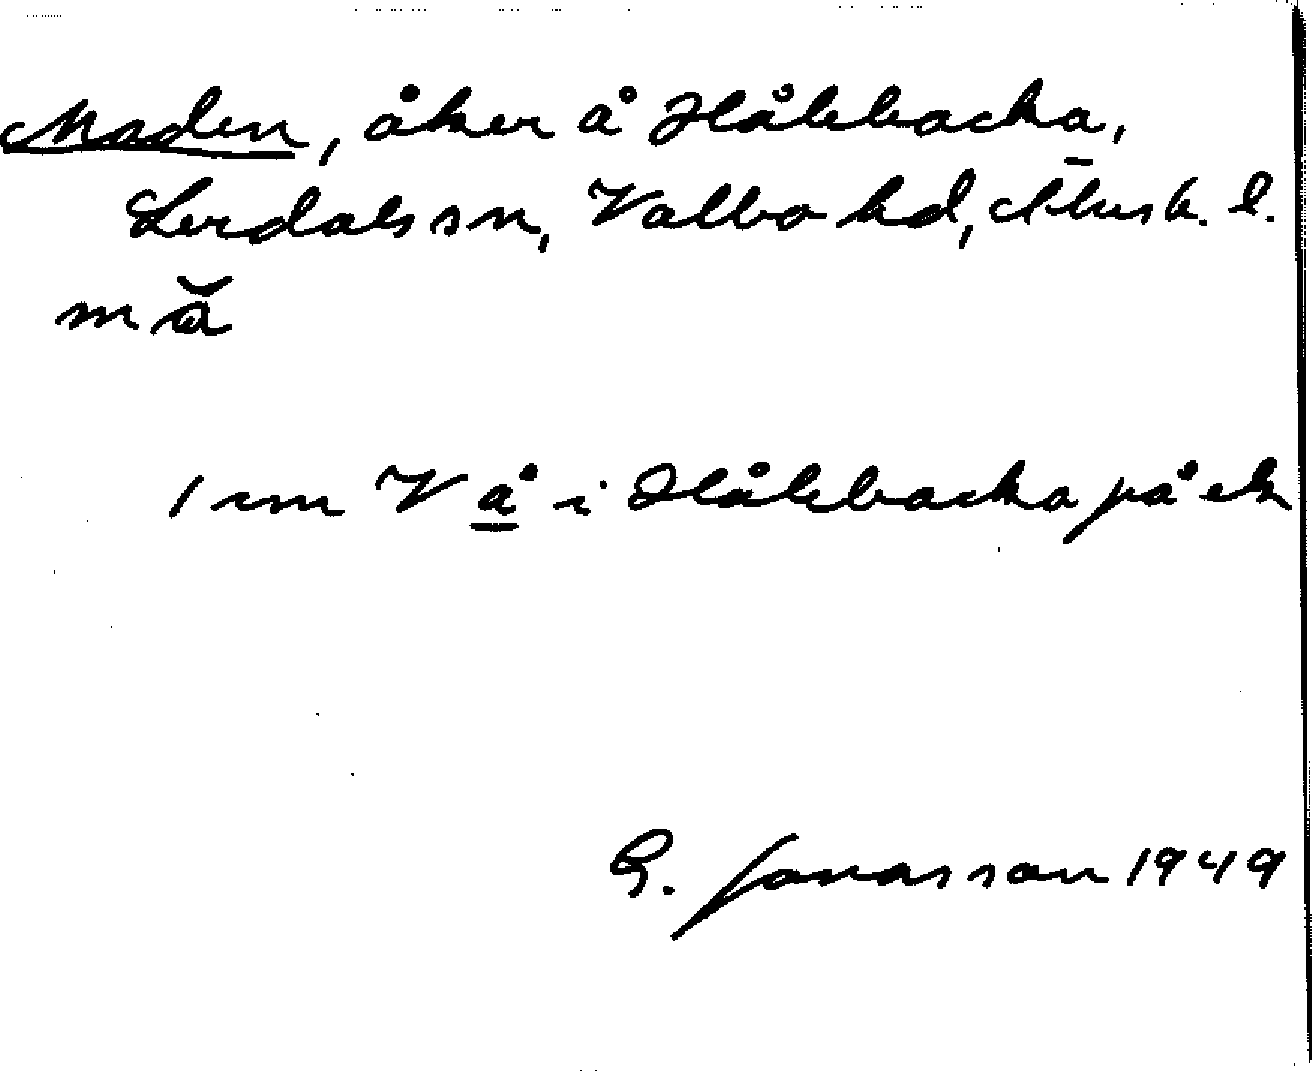 Maden, åker å Hålebacka,
Lerdals sn, Valbo hd, Älvsb. l.
1 cm V å i Hålebacka på ek
G. Jonasson 1949